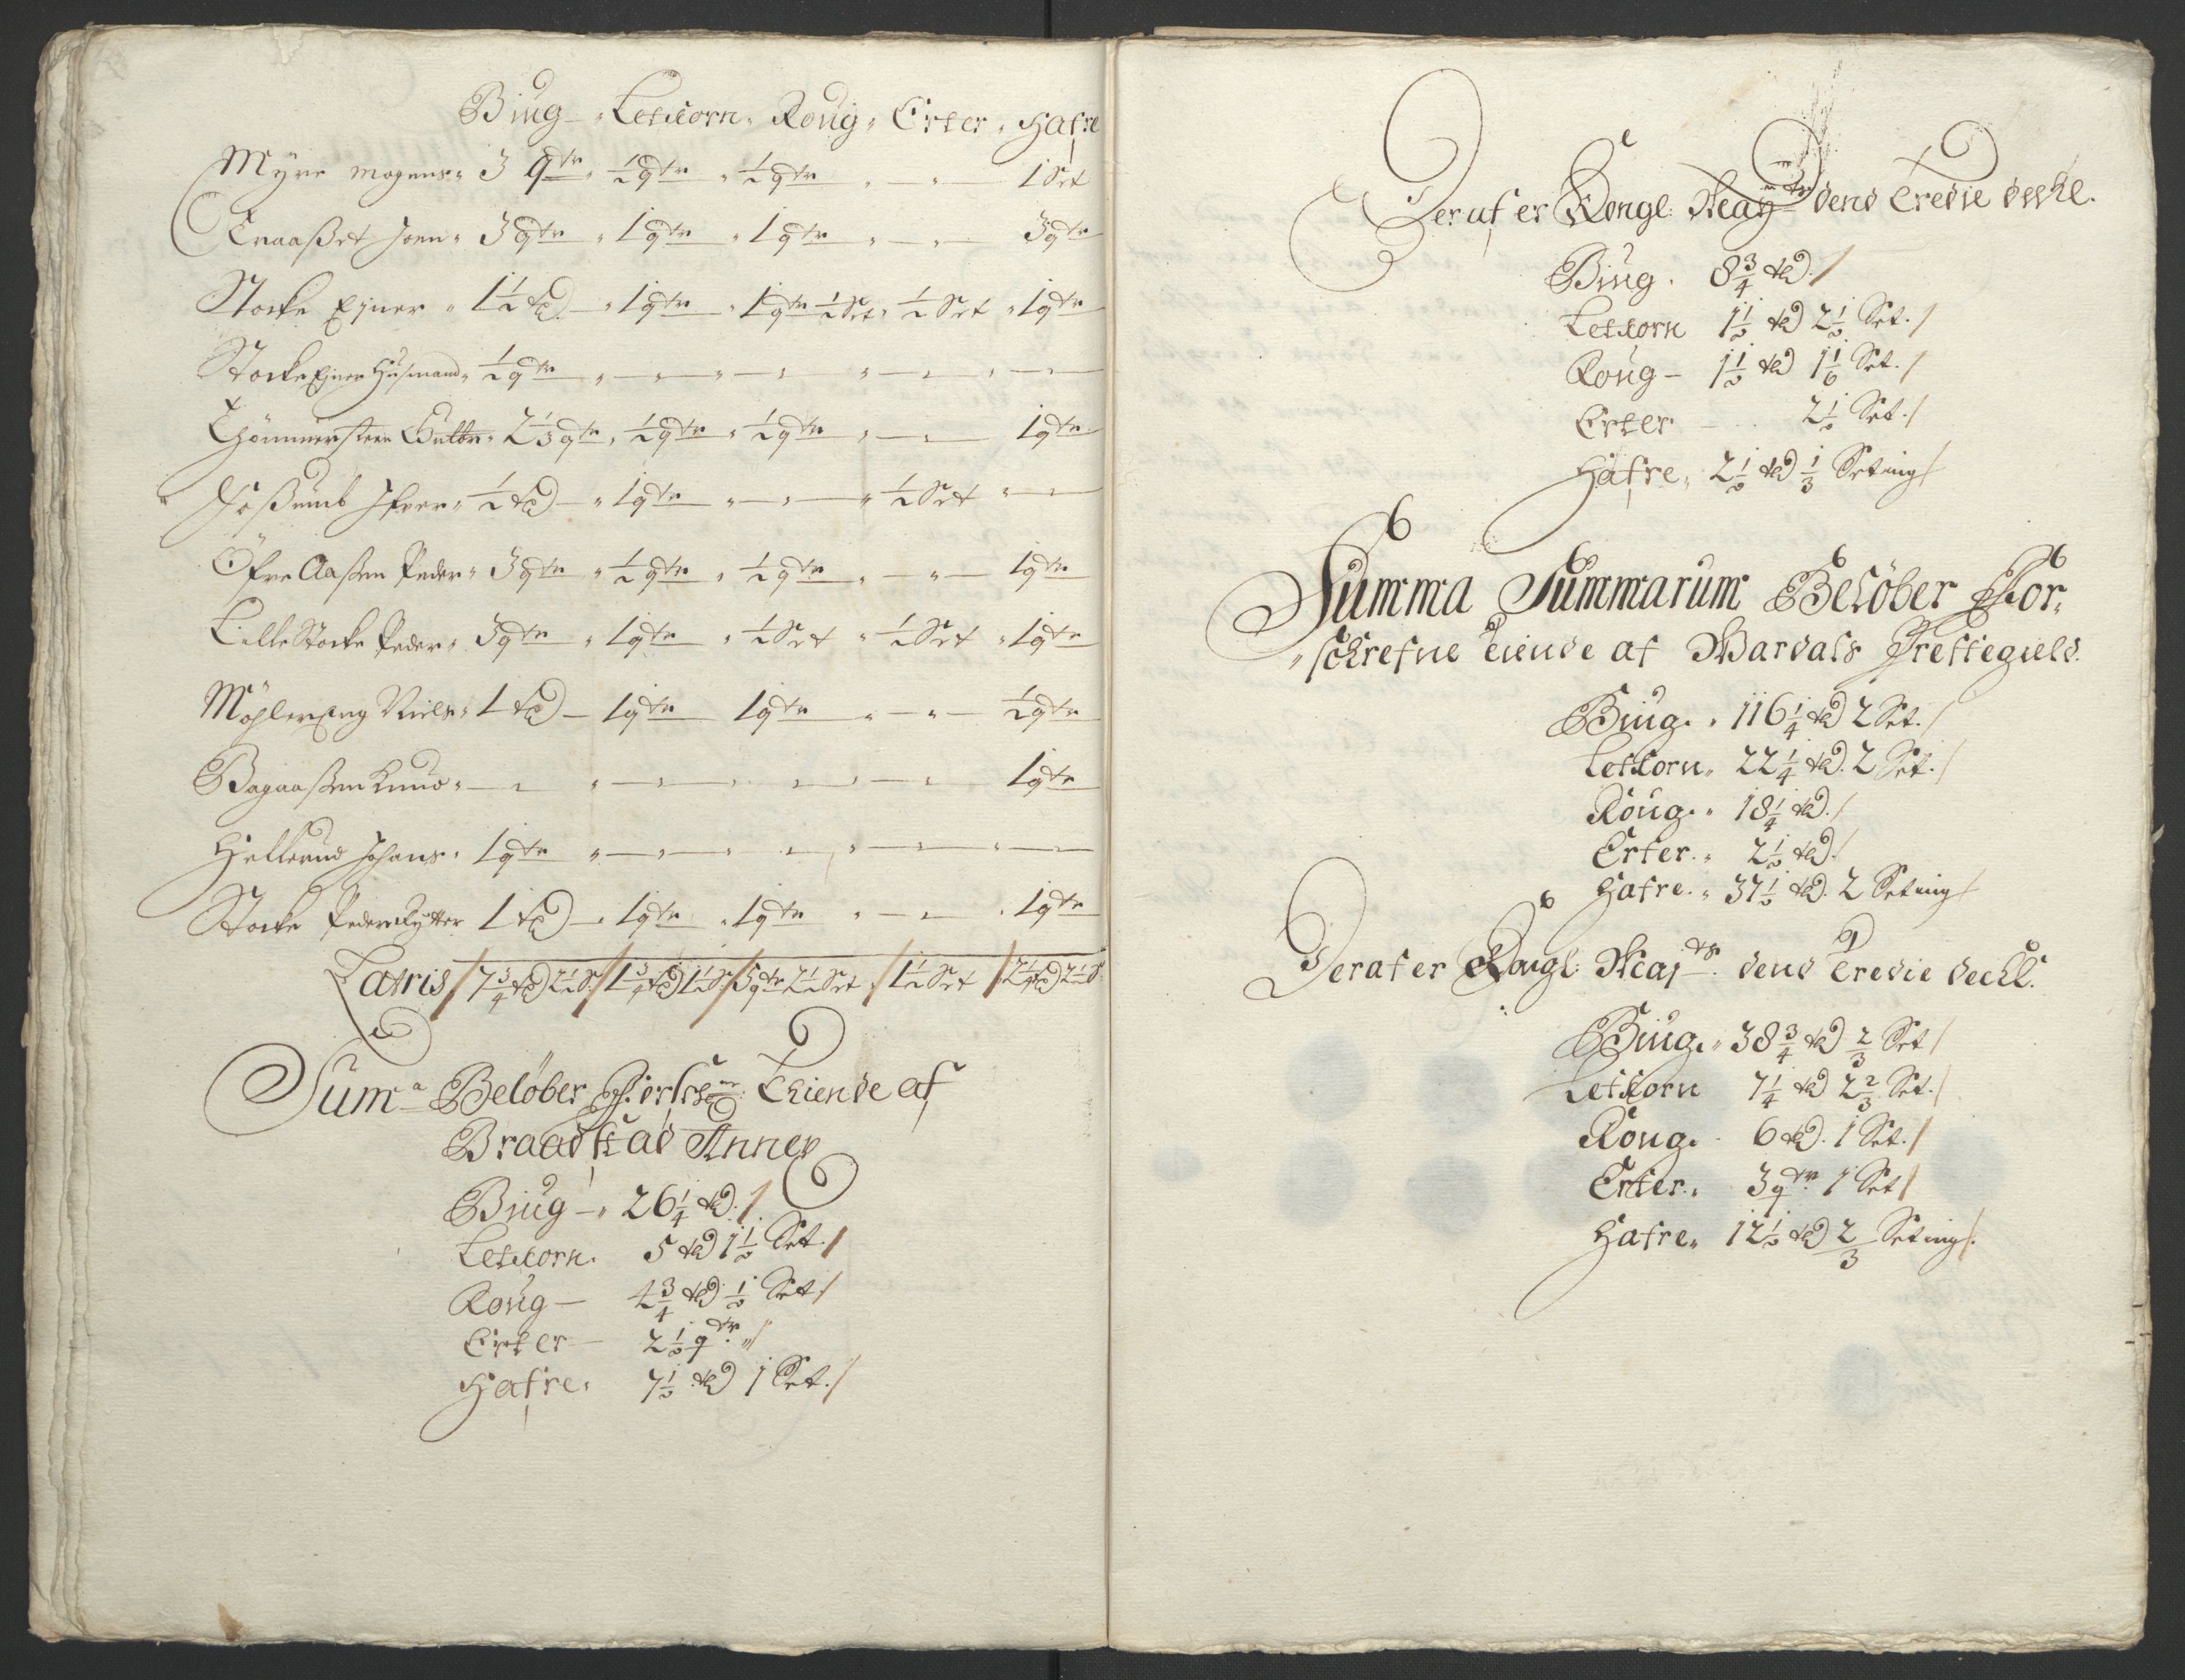 Biug – Letkorn, Roug, Erter, Hafre
Myre Mogens, 3 qtr, ½ qtr, ½ qtr – 1 Set
Traaßet Joen, 3 qtr, 1 qtr, 1 qtr – 3 qtr
Stocke Ejner, 1½ td – 1 qtr, 1 qtr ½ Set, ½ Set, 1 qtr
Stocke Ejner Husmand, ½ qtr
Guttor, 2⅓ qtr, ½ qtr, ½ qtr – 1 qtr
Ifver, ½ td – 1 qtr – ½ Set
Øfre Aaßen Peder, 3 qtr, ½ qtr, ½ qtr – 1 qtr
Lille Stocke Peder, 3 qtr, 1 qtr, ½ Set, ½ Set, 1 qtr
Möhler Eng Niels, 1 td – 1 qtr 1 qtr – ½ qtr
Bagaaßen Knud – 1 qtr
Hellerud Johans, 1 qtr
Stocke Peder Rytter 1 td – 1 qtr, 1 qtr – 1 qtr
Latris / 7¾ td 2½ S. / 1¾ td 1½ S. / 5 qtr 2½ Set / 1½ Set / 2¼ td 2½ S.
Sum̅a Belöber Forschr: Thiende af
Braadstad Annex
Biug – 26¼ td. /
Letkorn. 5 td 1½ Set. /
Roug – 4¾ td ½ Set /
Erter – 2½ qtr. /
Hafre. 7½ td 1 Set. /
Deraf er Kongl: Mayts dend Tredie deehl.
Biug. 8¾ td. /
Letkorn 1½ td 2½ Set. /
Roug – 1½ td 1⅙ Set. /
Erter – 2½ Set. /
Hafre, 2½ td ⅓ Seting /
Summa Summarum Belöber For,
,schrefne Tiende af Wardals Prestegield.
Biug. 116¼ td 2 Set. /
Letkorn, 22¼ td. 2 Set. /
Roug. 18¼ td. /
Erter. 2½ td. /
Hafre. 37½ td. 2 Seting /
Deraf er Kongl: Majts. dend Tredie deehl.
Biug. 38¾ td ⅔ Set /
Letkorn 7¼ td 2⅔ Set. /
Roug. 6 td. 1 Set. /
Erter. 3 qtr. 1 Set /
Hafre, 12½ td ⅔ Seting /.